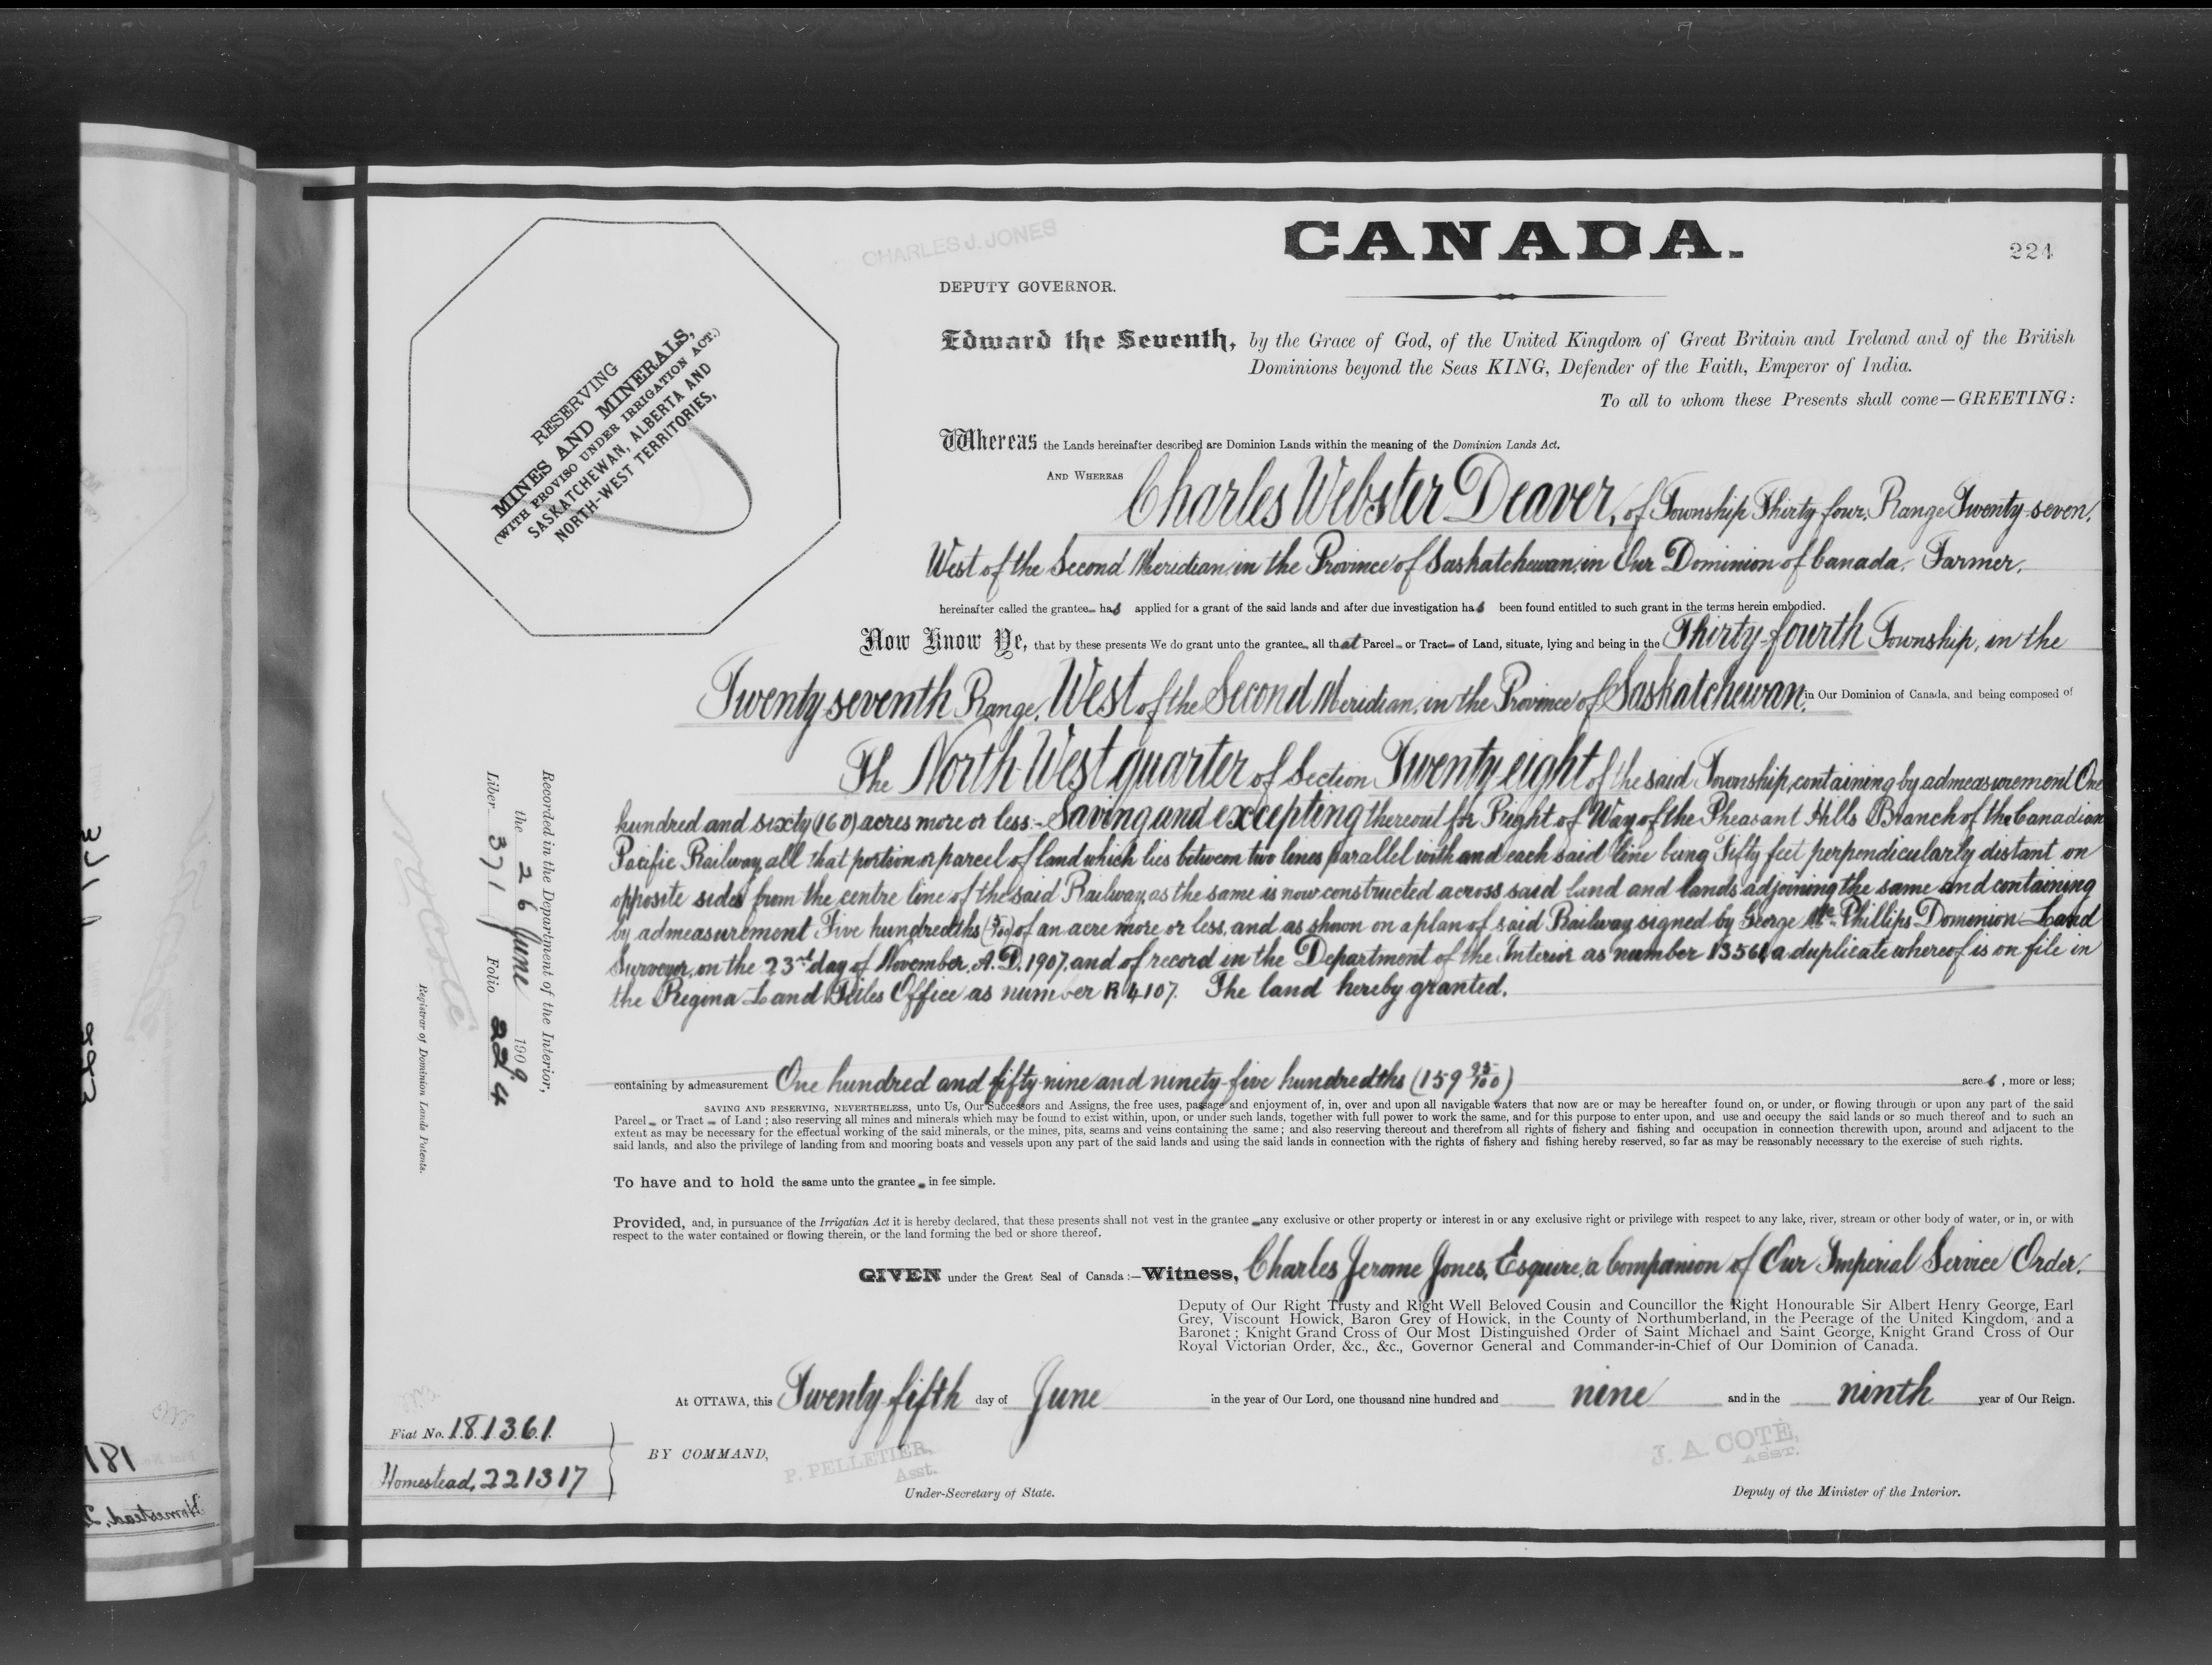 CANADA.
224
CHARLES J. JONES
DEPUTY GOVERNOR.
RESERVING
MINES AND MINERALS,
(WITH PROVISO UNDER IRRIGATION ACT.)
SASKATCHEWAN, ALBERTA AND
NORTH-WEST TERRITORIES,
Edward the Seventh, by the Grace of God, of the United Kingdom of Great Britain and Ireland and of the British
Dominions beyond the Seas KING, Defender of the Faith, Emperor of India.
To all to whom these Presents shall come—GREETING:
Whereas the Lands hereinafter described are Dominion Lands within the meaning of the Dominion Lands Act.
AND WHEREAS Charles Webster Deaver, of Township Thirty four, Range Twenty-seven,
West of the Second Meridian, in the Province of Saskatchewan, in Our Dominion of Canada, Farmer,
hereinafter called the grantee has applied for a grant of the said lands and after due investigation has been found entitled to such grant in the terms herein embodied.
Now Know Ye, that by these presents We do grant unto the grantee all that Parcel or Tract of Land, situate, lying and being in the Thirty-fourth Township, in the
Twenty seventh Range, West of the Second Meridian, in the Province of Saskatchewan, in Our Dominion of Canada, and being composed of
The North West quarter of Section Twenty eight of the said Township, containing by admeasurement One
hundred and sixty (160) acres more or less:- Saving and excepting thereout for Right of Way of the Pheasant Hills Branch of the Canadian
Pacific Railway, all that portion or parcel of land which lies between two lines parallel with and each said line being Fifty feet perpendicularly distant on
opposite sides from the centre line of the said Railway, as the same is now constructed across said land and lands adjoining the same and containing
by admeasurement Five hundredths (5/100) of an acre more or less, and as shown on a plan of said Railway signed by George Mc Phillips Dominion Land
Surveyor, on the 23rd day of November, A.D. 1907, and of record in the Department of the Interior as number 13561 a duplicate whereof is on file in
the Regina Land Titles Office as number R 4107. The land hereby granted.
containing by admeasurement One hundred and fifty-nine and ninety-five hundredths (159 95/100) acres, more or less;
SAVING AND RESERVING, NEVERTHELESS, unto Us, Our Successors and Assigns, the free uses, passage and enjoyment of, in, over and upon all navigable waters that now are or may be hereafter found on, or under, or flowing through or upon any part of the said
Parcel or Tract of Land; also reserving all mines and minerals which may be found to exist within, upon, or under such lands, together with full power to work the same, and for this purpose to enter upon, and use and occupy the said lands or so much thereof and to such an
extent as may be necessary for the effectual working of the said minerals, or the mines, pits, seams and veins containing the same; and also reserving thereout and therefrom all rights of fishery and fishing and occupation in connection therewith upon, around and adjacent to the
said lands, and also the privilege of landing from and mooring boats and vessels upon any part of the said lands and using the said lands in connection with the rights of fishery and fishing hereby reserved, so far as may be reasonably necessary to the exercise of such rights.
To have and to hold the same unto the grantee in fee simple.
Provided, and, in pursuance of the Irrigatian Act it is hereby declared, that these presents shall not vest in the grantee any exclusive or other property or interest in or any exclusive right or privilege with respect to any lake, river, stream or other body of water, or in, or with
respect to the water contained or flowing therein, or the land forming the bed or shore thereof.
GIVEN under the Great Seal of Canada:—Witness, Charles Jerome Jones, Esquire, a Companion of Our Imperial Service Order.
Deputy of Our Right Trusty and Right Well Beloved Cousin and Councillor the Right Honourable Sir Albert Henry George, Earl
Grey, Viscount Howick, Baron Grey of Howick, in the County of Northumberland, in the Peerage of the United Kingdom, and a
Baronet; Knight Grand Cross of Our Most Distinguished Order of Saint Michael and Saint George, Knight Grand Cross of Our
Royal Victorian Order, &c., &c., Governor General and Commander-in-Chief of Our Dominion of Canada.
At OTTAWA, this Twenty fifth day of June in the year of Our Lord, one thousand nine hundred and nine and in the ninth year of Our Reign.
BY COMMAND,
P. PELLETIER,
Asst.
Under-Secretary of State.
J. A. COTÉ,
ASST.
Deputy of the Minister of the Interior.
Fiat No. 181361.
Homestead, 221317
Recorded in the Department of the Interior,
the 26 June 1909.
Liber 371 Folio 224
Registrar of Dominion Lands Patents.
371
223
181
Homestead, 2